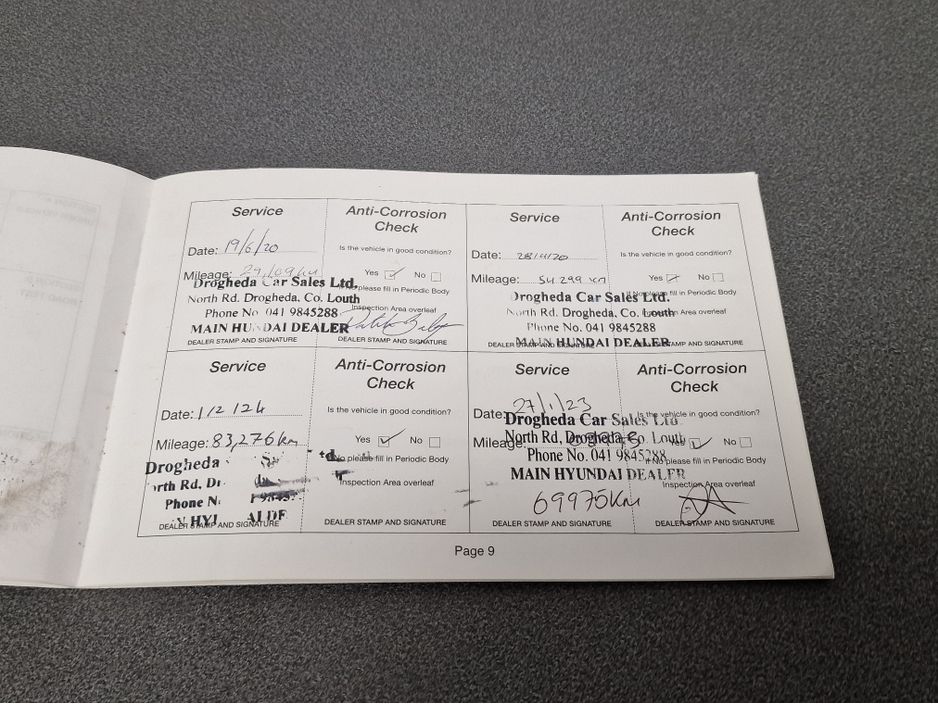 Service
Anti-Corrosion
Check
Date: 19/6/20
Is the vehicle in good condition?
Mileage:
Yes ✓ No
Drogheda Car Sales Ltd.
No please fill in Periodic Body
North Rd. Drogheda, Co. Louth
Inspection Area overleaf
Phone No 041 9845288
MAIN HUNDAI DEALER
DEALER STAMP AND SIGNATURE
DEALER STAMP AND SIGNATURE
Service
Anti-Corrosion
Check
Date:
Is the vehicle in good condition?
Mileage: 54 299 km
Yes ✓ No
If No please fill in Periodic Body
Drogheda Car Sales Ltd.
North Rd. Drogheda, Co. Louth
Inspection Area overleaf
Phone No. 041 9845288
MAIN HUNDAI DEALER
DEALER STAMP AND SIGNATURE
DEALER STAMP AND SIGNATURE
Service
Anti-Corrosion
Check
Date: 1/2/24
Is the vehicle in good condition?
Mileage: 83,276km
Yes ✓ No
No please fill in Periodic Body
Drogheda
Inspection Area overleaf
Rd,
Phone
DEALER STAMP AND SIGNATURE
DEALER STAMP AND SIGNATURE
Service
Anti-Corrosion
Check
Date: 27/1/23
Is the vehicle in good condition?
Drogheda Car Sales Ltd.
Mileage:
Yes ✓ No
North Rd, Drogheda, Co. Louth
If No please fill in Periodic Body
Phone No. 041 9845288
MAIN HYUNDAI DEALER
Inspection Area overleaf
69975km
DEALER STAMP AND SIGNATURE
DEALER STAMP AND SIGNATURE
Page 9